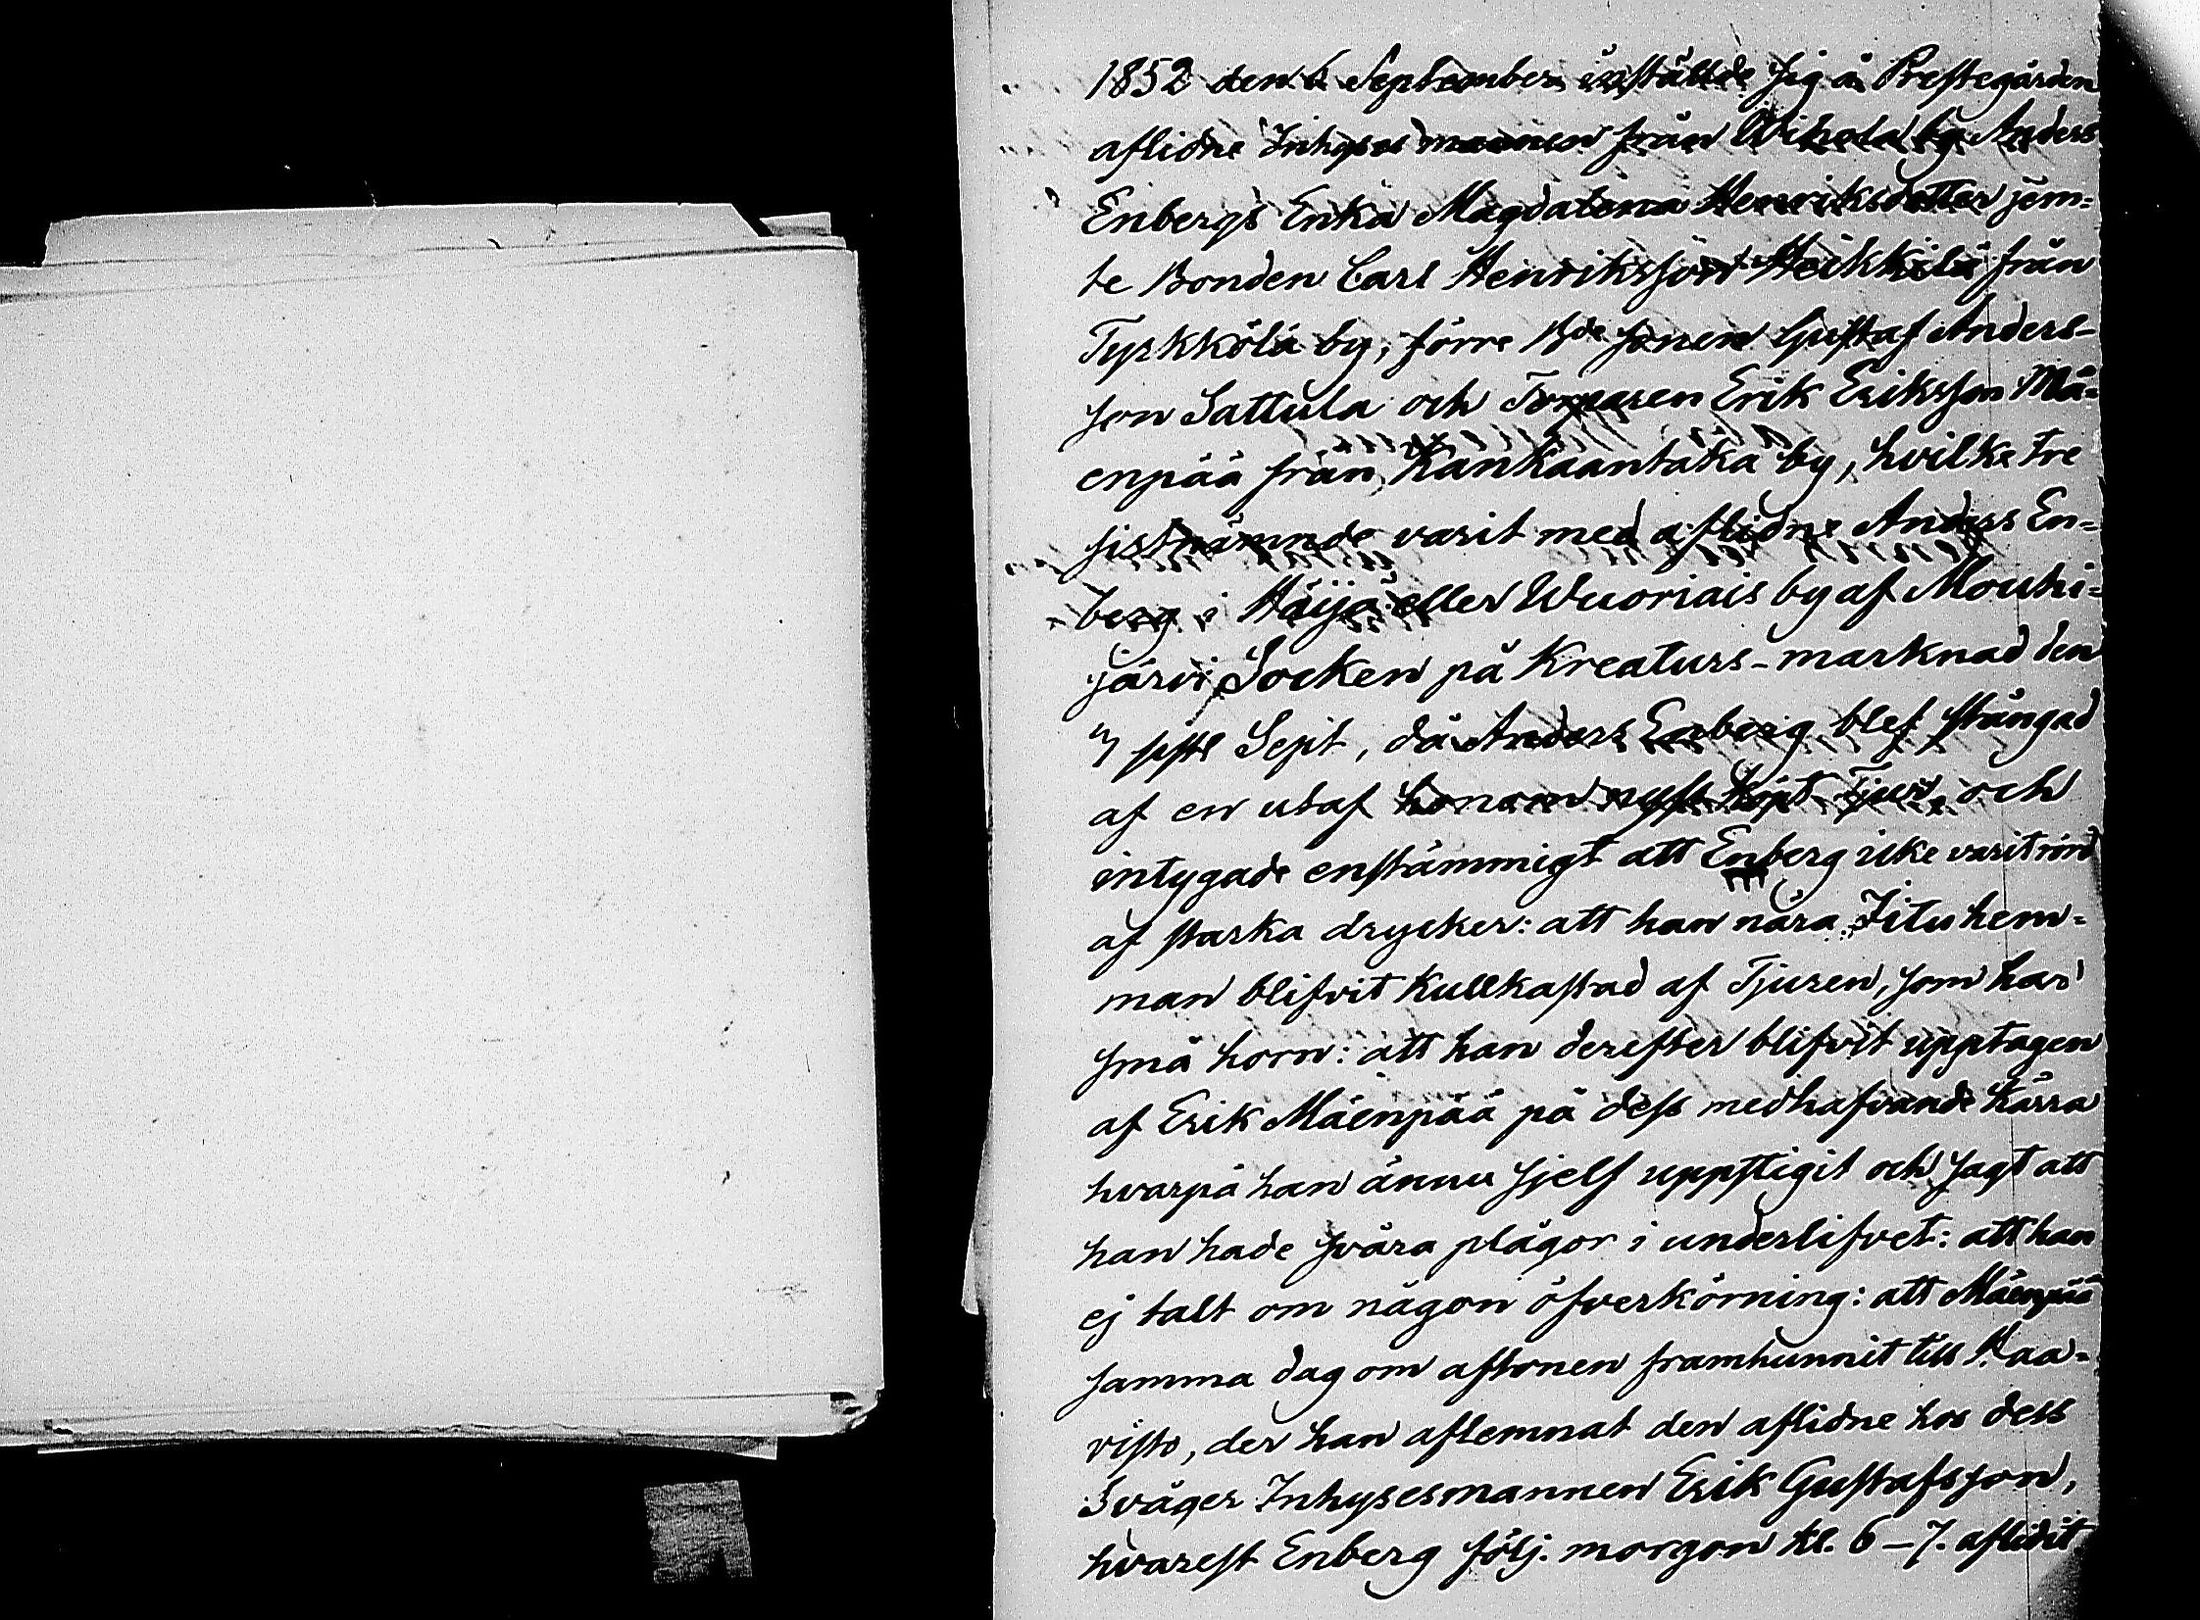 1852 den 6 September inställde sig å Prestegården
aflidne Inhyses mannen från Wihola by Anders
Enbergs Enka Magdalena Henriksdotter jem-
te Bonden Carl Henriksson Heikkilä från
Tyrkkölä by, förre Bde sonen Gustaf Anders-
son Sattula och Torparen Erik Eriksson Mä-
enpää från Kankaantaka by, hvilke tre
sistnämnde varit med aflidne Anders En-
berg i Häijä eller Wuoriais by af Mouhi-
järvi Socken på Kreaturs-marknad den
sistl Sept, då Anders Enberg blef stångad
af en utaf honom nyss köpt Tjur, och
intygade enstämmigt att Enberg icke varit rörd
af starka drycker: att han nära Jitu hem-
man blifvit kullkastad af Tjuren, som har
små horn: att han derefter blifvit upptagen
af Erik Mäenpää på dess medhafvande kärra
hvarpå han ännu sjelf uppstigit och sagt att
han hade svåra plågor i underlifvet: att han
ej talt om någon öfverkörning: att Mäenpää
samma dag om aftonen framhunnit till Haa-
visto, der han aflemnat den aflidne hos dess
Svåger Inhysesmannen Erik Gustafsson,
hvarest Enberg följ. morgon kl. 6-7. aflidit.